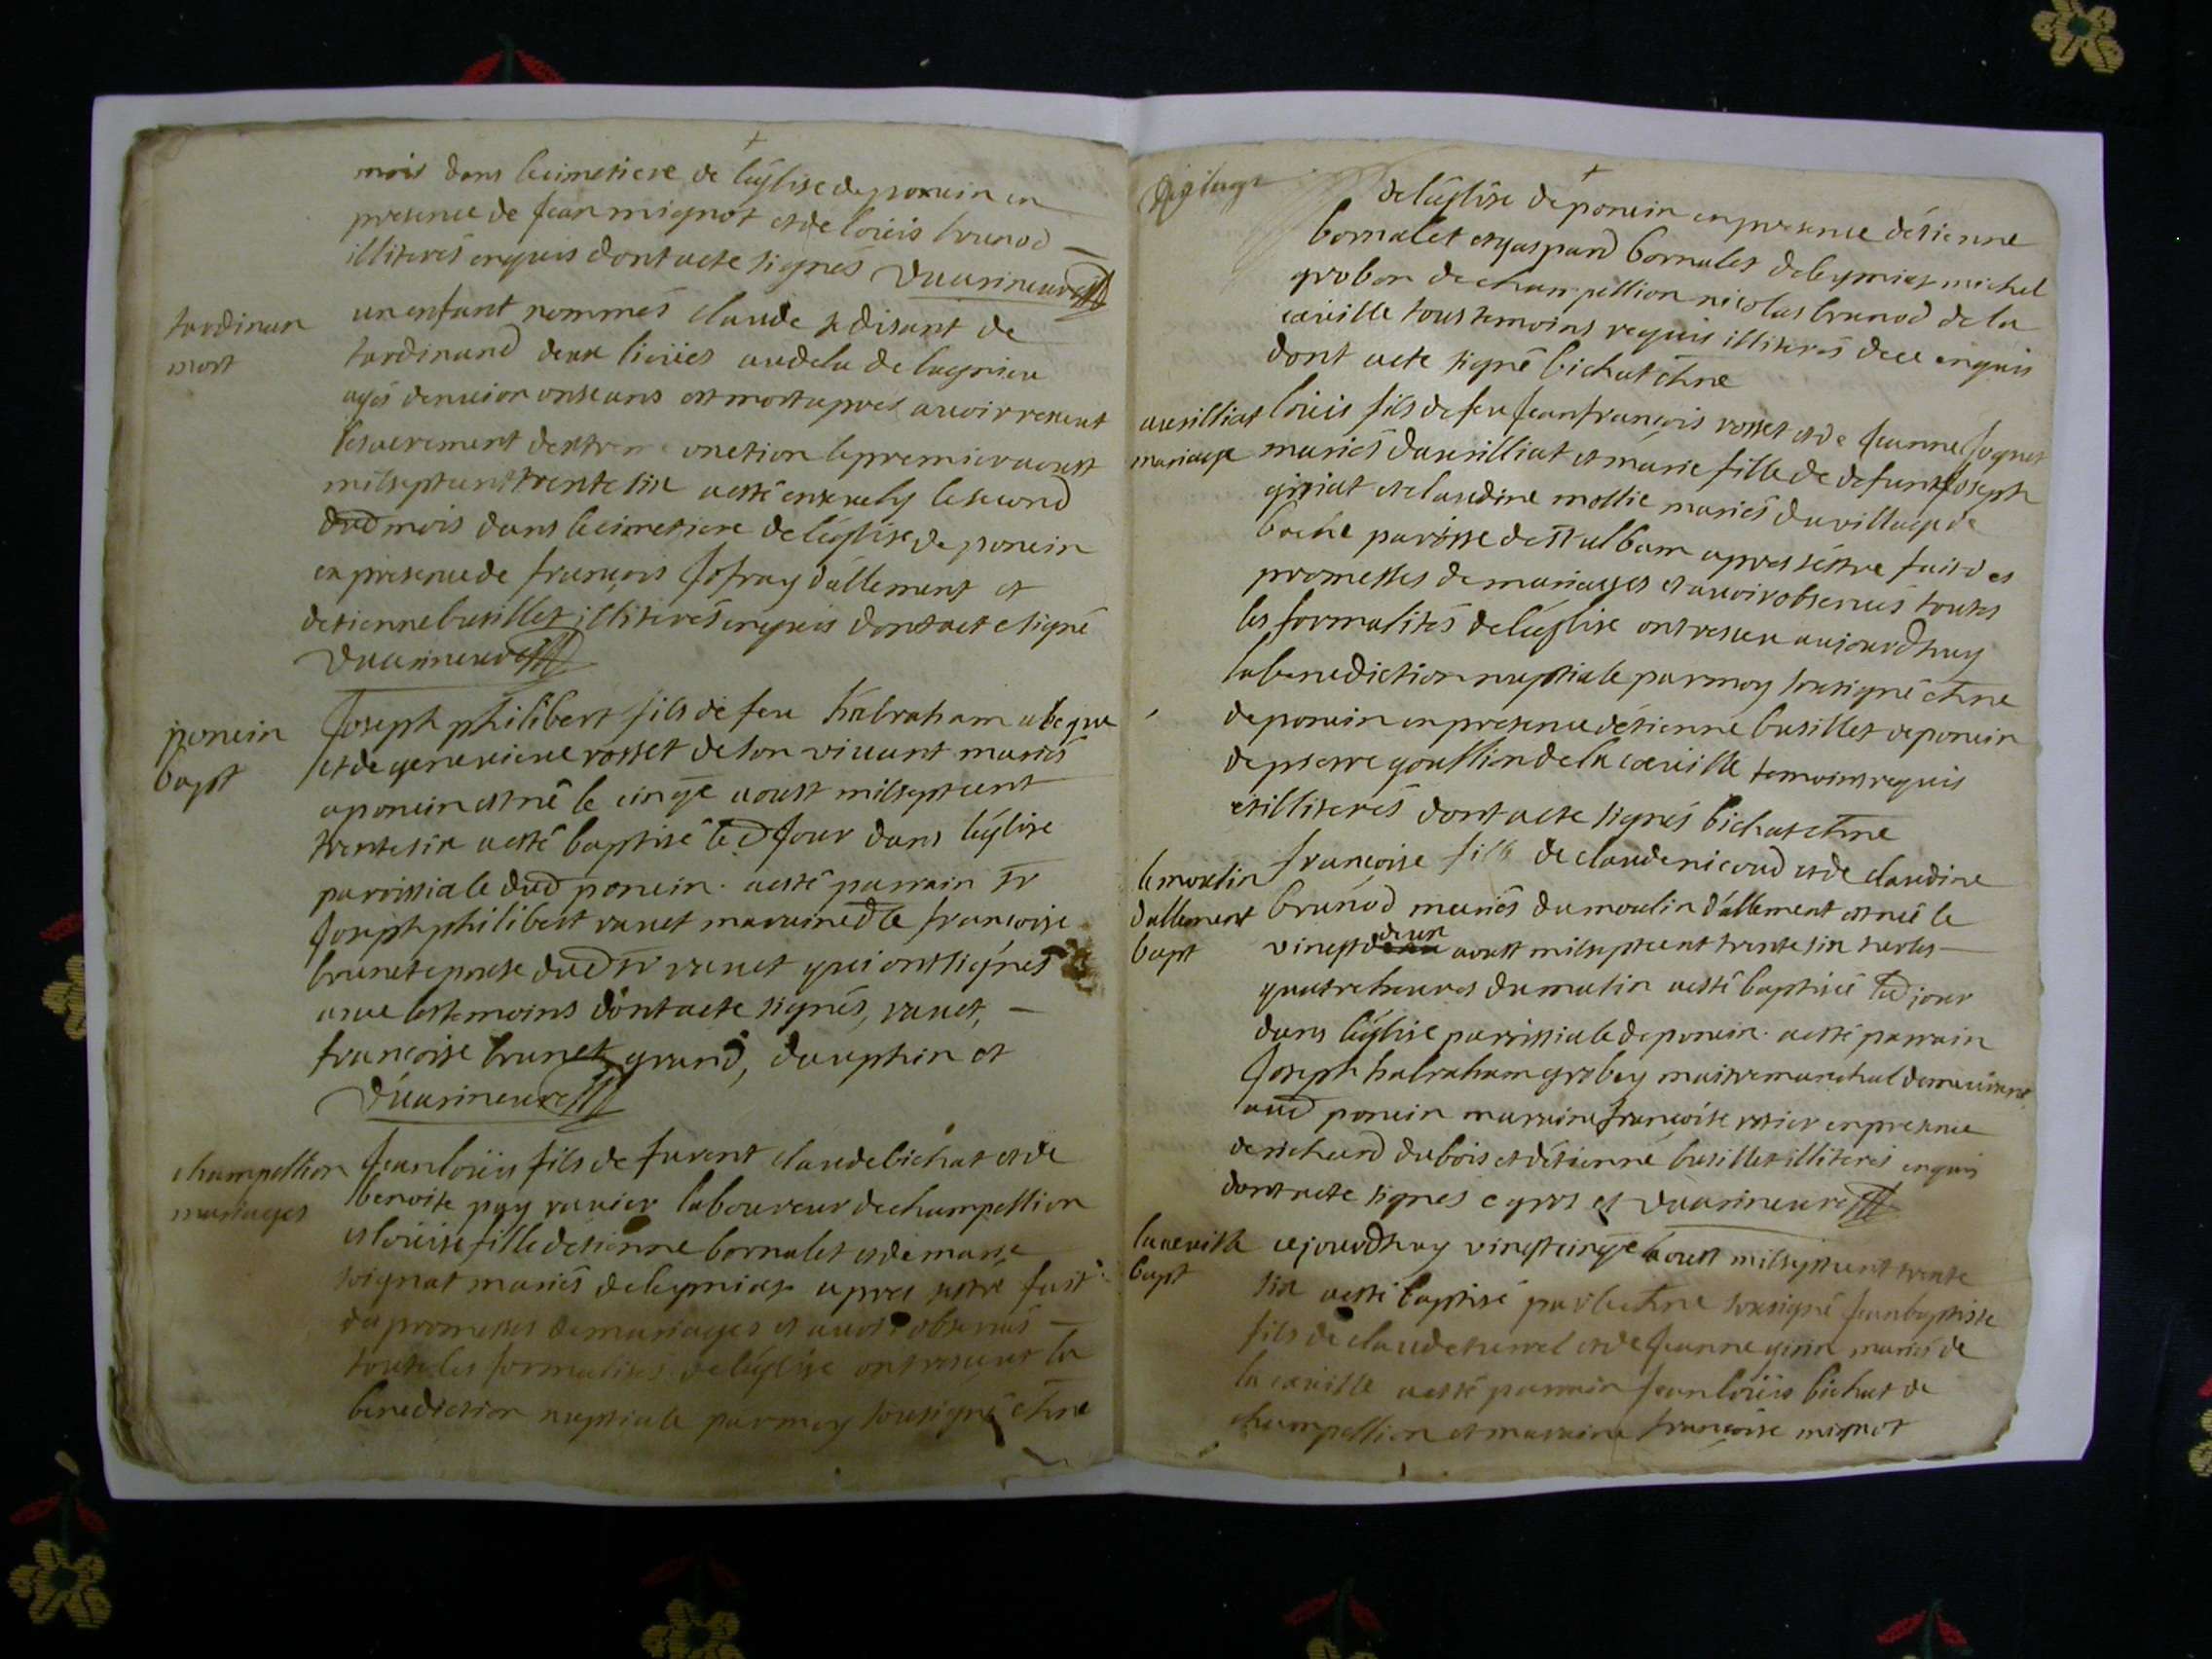 mois dans le cimetiere de l'église de poncin en
presence de Jean mignot et de loüis brunod
illiterés enquis dont acte signés Duarineure
tardinan
mort
un enfant nommés claude se disant de
tardinand deux lieües audela de lagnieu
agés de neuf on onse ans est mort apres avoir receut
le sacrement dextreme onction le premier aoust
milseptcent trente six a esté ensevely le second
dud mois dans le cimetiere de l'église de poncin
en presence de françois Jofray d'allement et
detienne busillet illiterés enquis dont acte signé
Duarineure
poncin
bapt
Joseph philibert fils de feu habraham
et de genevieve rosset de son vivant mariés
a poncin est né le cinqe aoust milseptcent
trente six a esté baptisé led Jour dans l'église
parrissiale dud poncin. a esté parrain sr
Joseph philibert ravet marraine dlle françoise
brunet epouse dud sr ravet qui ont signés
avec les temoins dont acte signés, ravet,
françoise brunet, grand, dauphin et
Duarineure
champellion
mariages
Jean loüis fils de furent claude bichat et de
benoite puy ravier laboureur de champellion
et loüise fille detienne bornalet et de
soignat mariés de leymiat apres sestre fait
de promesses de mariages et avoir observés
toute les formalités de l'église ont receut la
benediction nuptiale par moy sousigné chne
de l'église de poncin en presence détienne
bornalet et gaspard bornalet de leymiat michel
grobon de champellion nicolas brunod de la
cueille tous temoins requis illiterés de ce enquis
dont acte signé bichat chne
avrilliat
mariage
loüis fils de feu Jean françois rosset et de Jeanne Jognet
mariés davrilliat et marie fille de defunt Joseph
giriat et claudine mollie mariés du village de
boche paroisse de st alban apres séstre fait des
promesses de mariages et avoir observés toutes
les formalités de l'église ont receu aujourdhuy
la benediction nuptiale par moy sousigné chne
de poncin en presence détienne busillet de poncin
de pierre gouttion de la cueille temoins requis
et illiterés dont acte signés bichat chne
le moulin
dallement
bapt
françoise fille de claude nicoud et de claudine
brunod mariés du moulin d'allement est née le
vingtdeux aoust milseptcent trente six sur les
quatre heures du matin a esté baptisée led jour
dans l'église parrissiale de poncin. a esté parrain
Joseph habraham grobey maitre marechal demeurant
aud poncin marraine françoise rosier en presence
de richard dubois et détienne busillet illiterés enquis
dont acte signes c gros et Duarineure
la cueille
bapt
cejourdhuy vingtcinqe aoust milseptcent trente
six a esté baptisé par le chne sousigné Jean baptiste
fils de claude et de Jeanne mariés de
la cueille a esté parrain Jean loüis bichat de
champellion et maraine françoise mignot